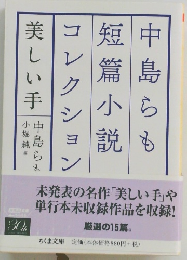 中島らも
短篇小説
コレクション
美しい手
中島らも
小堀純 編
未発表の名作「美しい手」や
単行本未収録作品を収録!
厳選の15篇。
ちくま文庫